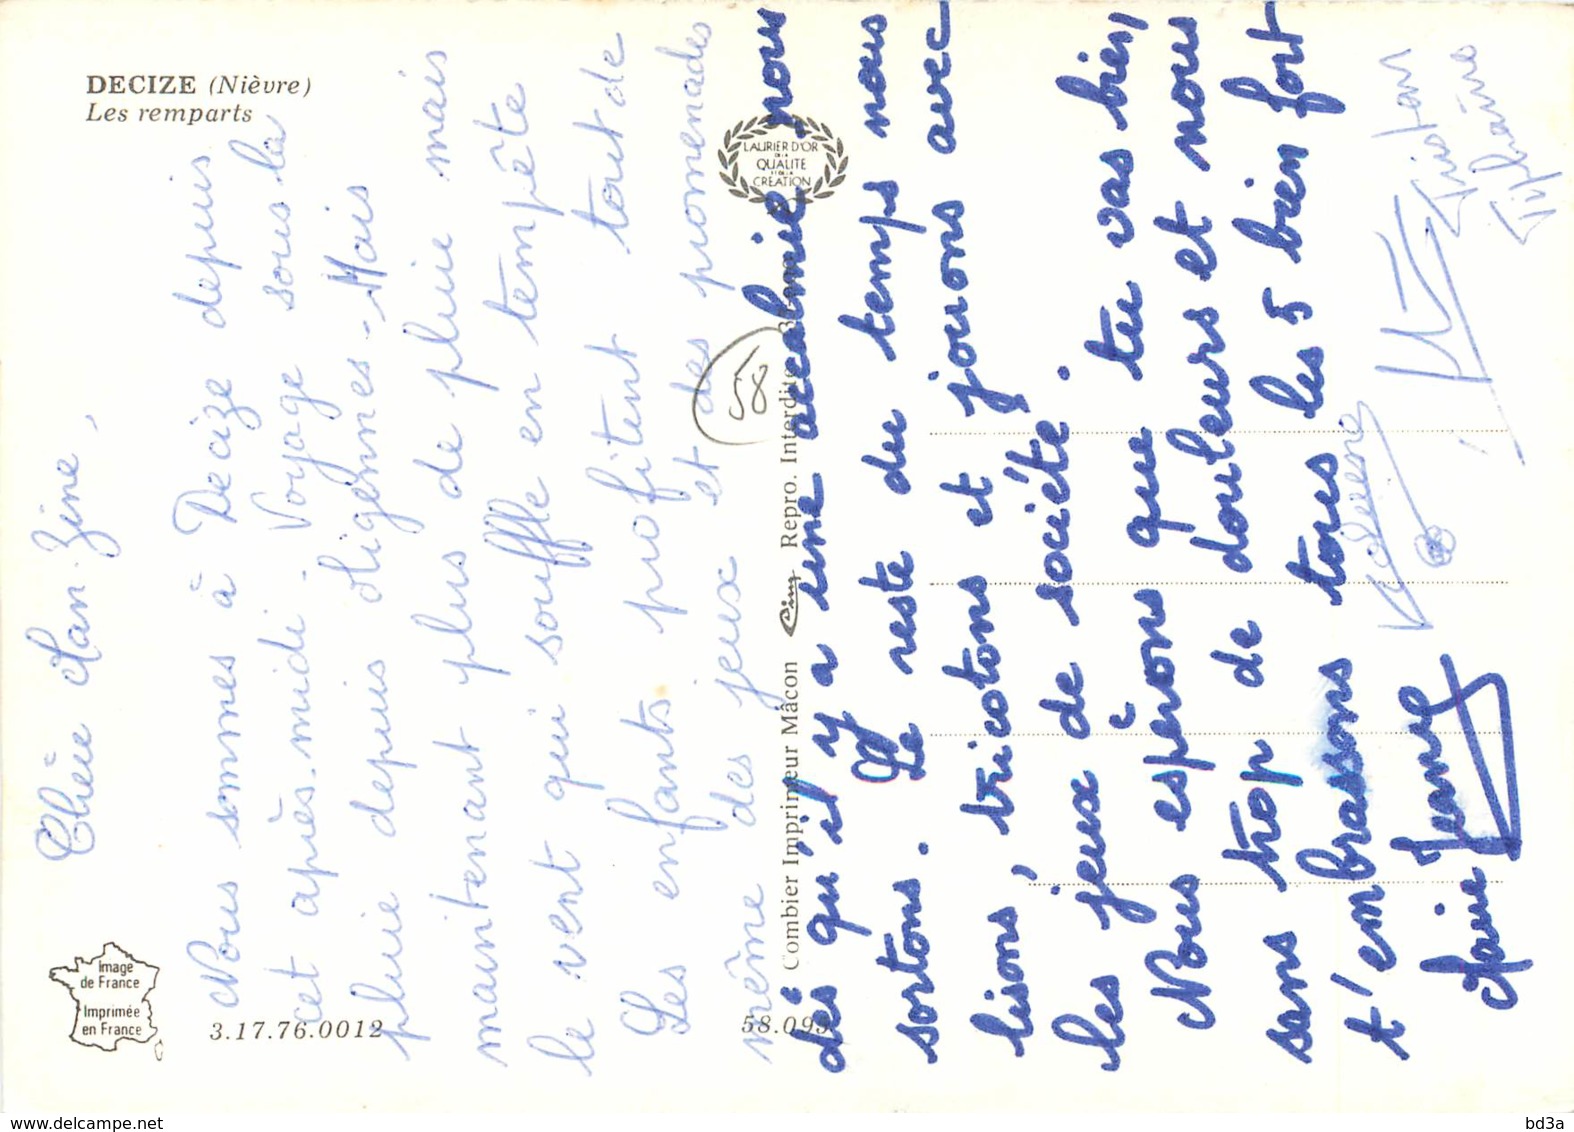 DECIZE (Nièvre)
Les remparts
Chère Man-Zine,
Nous sommes à Decize depuis
cet après-midi. Voyage sous la
pluie depuis oligennes - Mais
maintenant plus de pluie mais
le vent qui souffle en tempête
Les enfants profitent tout de
même des jeux et des promenades
dès qu'il y a une accalmie, nous
sortons. Le reste du temps nous
lisons, tricotons et jouons avec
les jeux de société.
Nous espérons que tu vas bien
sans trop de douleurs et nous
t'embrassons tous les 5 bien fort
Marie Jeanne
Tristan
Tiphaine
LAURIER D'OR
DE LA
QUALITE
ET DE LA
CREATION
58
Combier Imprimeur Mâcon Cim Repro. Interdite
Image
de France
Imprimée
en France
3.17.76.0012
58.095
www.delcampe.net
bd3a